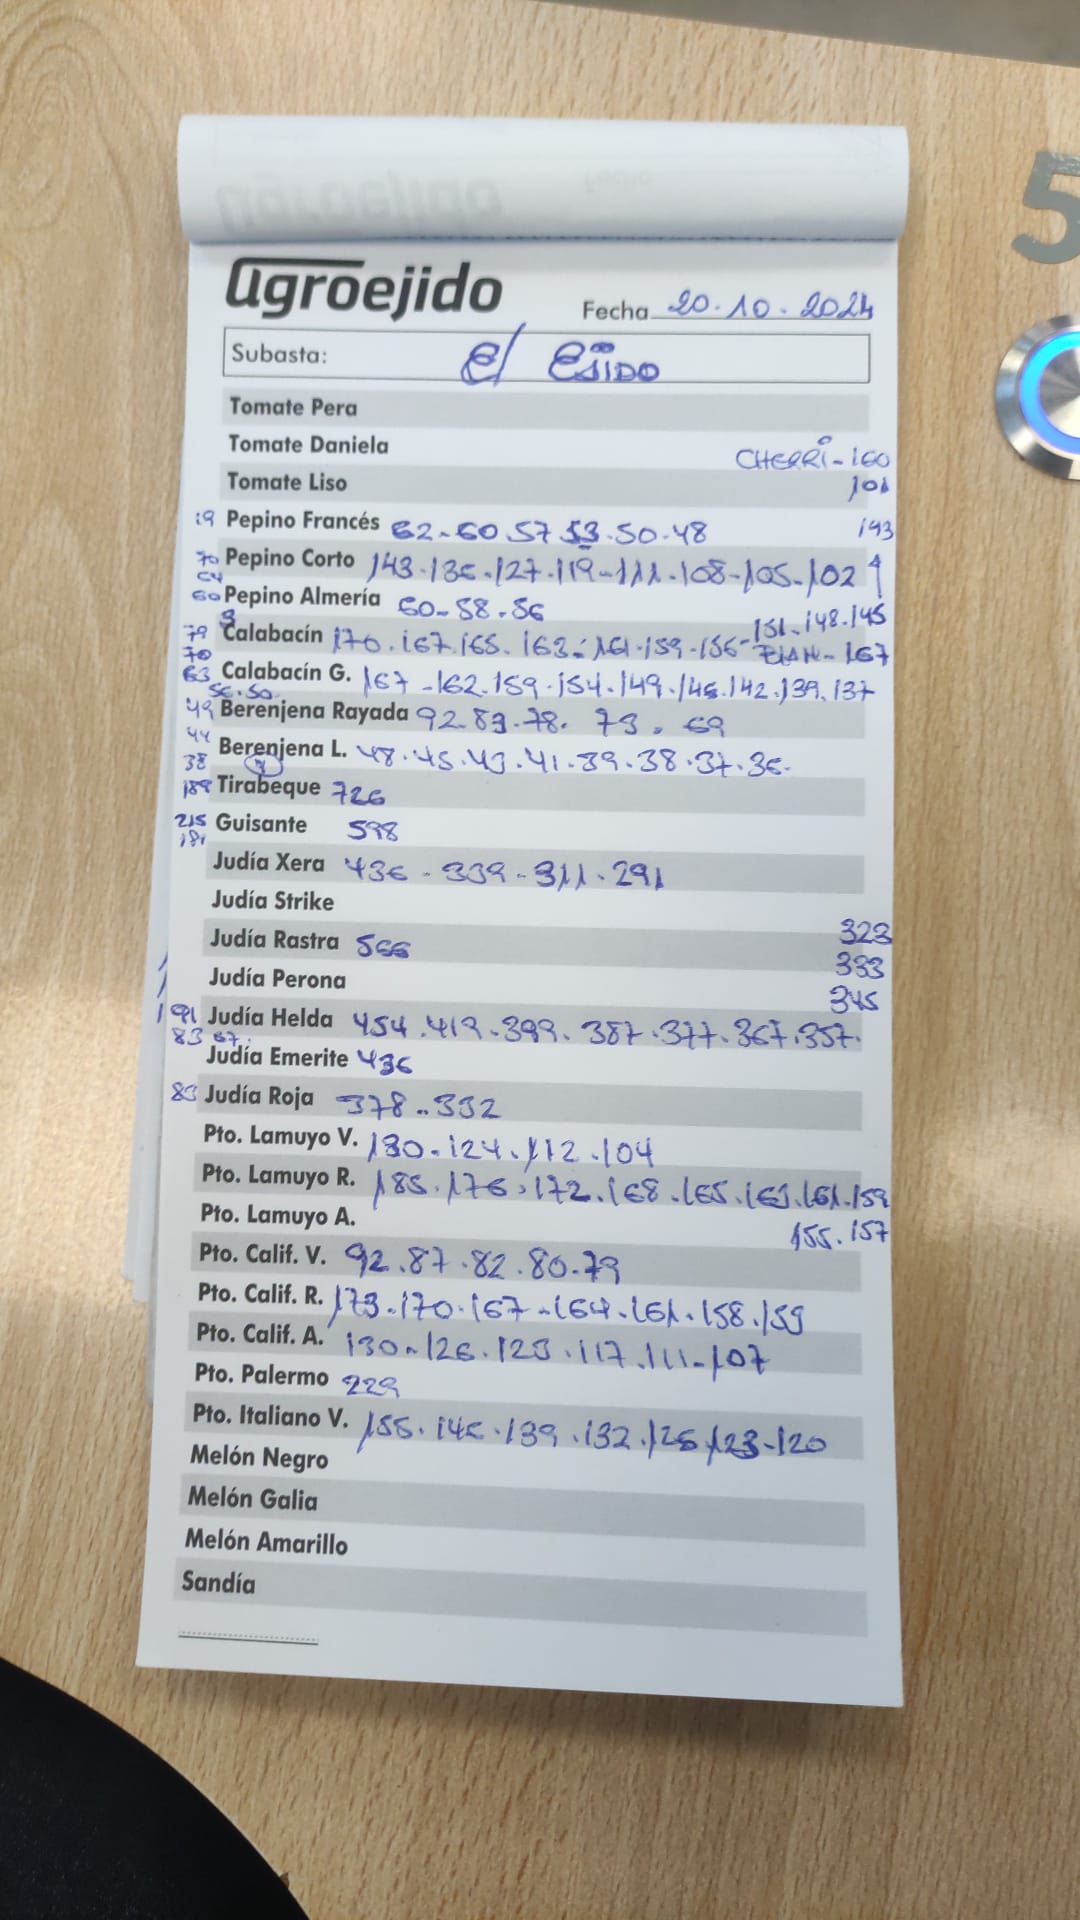 agroejido
Fecha 20.10.2024
Subasta: El Ejido
Tomate Pera
Tomate Daniela CHERRI-160
Tomate Liso 101
19 Pepino Francés 62-60.57.53.50.48 143
70 Pepino Corto 143.136.127.119-111.108-105-102
64
60 Pepino Almería 60-58-56 151.148.145
79 Calabacín 170.167.165.163.161.159.156- BLAN-167
70
63 Calabacín G. 167-162.159.154.149.146.142.139.137
56.50
49 Berenjena Rayada 92.83.78.73.69
44
38 Berenjena L. 48.45.43.41.39.38.37.36.
189 Tirabeque 726
215 Guisante 598
181
Judía Xera 436-339-311.291
Judía Strike 323
Judía Rastra 566 333
Judía Perona 345
191 Judía Helda 454.419.399.387.377.367.357.
83 67.
Judía Emerite 436
83 Judía Roja 378..332
Pto. Lamuyo V. 130-124.112.104
Pto. Lamuyo R. 185.176.172.168.165.163.161.159
Pto. Lamuyo A. 155.157
Pto. Calif. V. 92.87.82.80.79
Pto. Calif. R. 173.170.167-164.161.158.159
Pto. Calif. A. 130.126.123.117.111-107
Pto. Palermo 229
Pto. Italiano V. 155.146.139.132.126.123-120
Melón Negro
Melón Galia
Melón Amarillo
Sandía
5